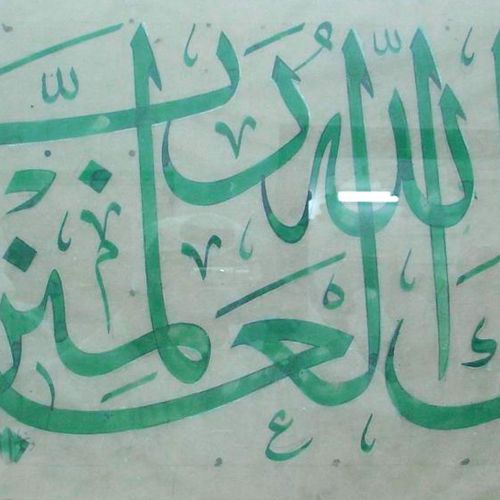 الله رب العلمين